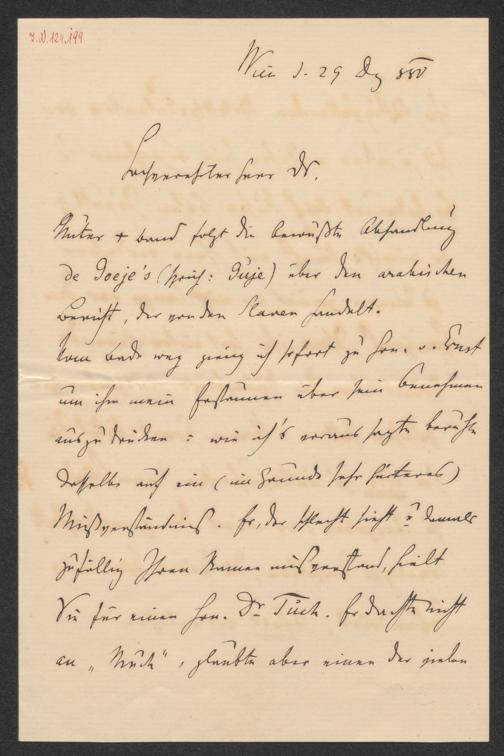 I.N. 124.199
Wien d. 29 Dez 880
Hochverehrter Herr Dr.
Unter + band folgt die bewußte Abhandlung
de Goeje's (sprich: Guje) über den arabischen
Bericht, der von den Slaven handelt.
Vom Bade weg gieng ich sofort zu Hrn. v. Ernst
um ihm mein Erstaunen über sein Benehmen
auszudrücken: wie ich's voraus sagte beruhte
dasselbe auf ein (im Grunde sehr heiteres)
Mißverständnis. Er, der schlecht hört u damals
zufällig Ihren Namen misverstand, hielt
Sie für einen Hrn. Dr Tuch. Er dachte nicht
an „Much“, glaubte aber einen der vielen